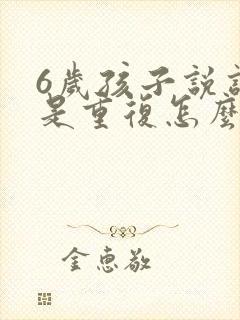 6歲孩子說
是重復怎麼
金惠敬